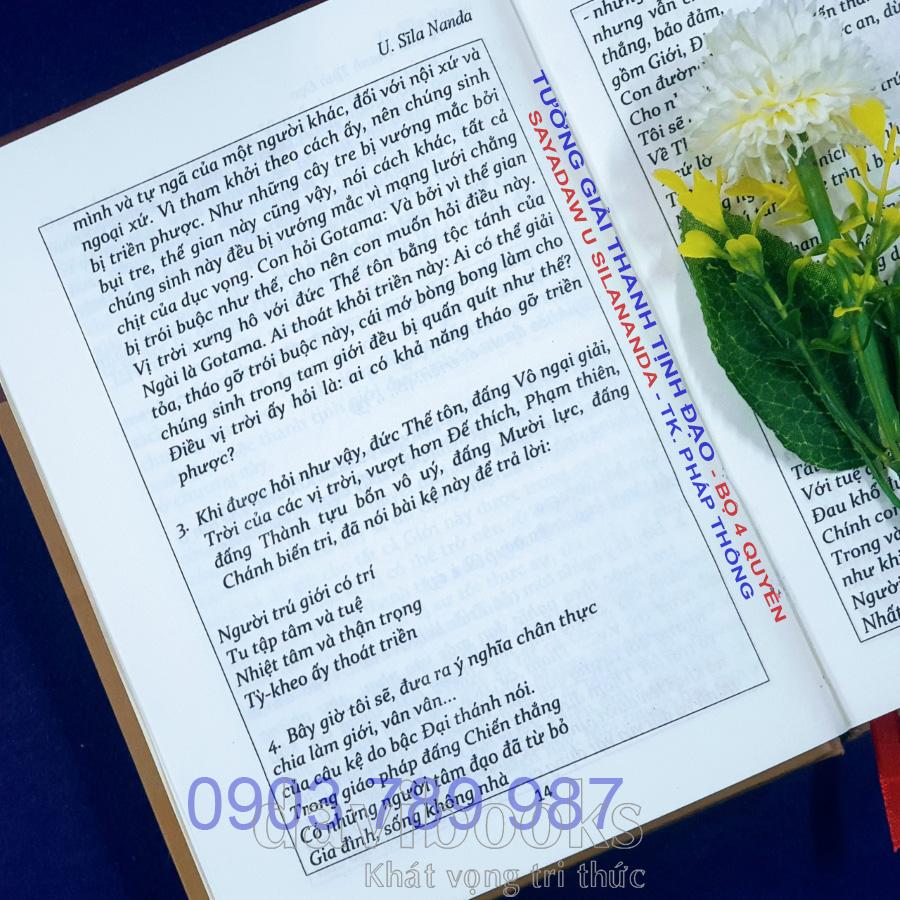 U. Sīla Nanda
mình và tự ngã của một người khác, đối với nội xứ và
ngoại xứ. Vì tham khởi theo cách ấy, nên chúng sinh
bị triền phược. Như những cây tre bị vướng mắc bởi
bụi tre, thế gian này cũng vậy, nói cách khác, tất cả
chúng sinh này đều bị vướng mắc vì mạng lưới chằng
chịt của dục vọng. Con hỏi Gotama: Và bởi vì thế gian
bị trói buộc như thế, cho nên con muốn hỏi điều này.
Vị trời xưng hô với đức Thế tôn bằng tộc tánh của
Ngài là Gotama. Ai thoát khỏi triền này: Ai có thể giải
tỏa, tháo gỡ trói buộc này, cái mớ bòng bong làm cho
chúng sinh trong tam giới đều bị quấn quít như thế?
Điều vị trời ấy hỏi là: ai có khả năng tháo gỡ triền
phược?
3. Khi được hỏi như vậy, đức Thế tôn, đấng Vô ngại giải,
Trời của các vị trời, vượt hơn Đế thích, Phạm thiên,
đấng Thành tựu bốn vô uý, đấng Mười lực, đấng
Chánh biến tri, đã nói bài kệ này để trả lời:
Người trú giới có trí
Tu tập tâm và tuệ
Nhiệt tâm và thận trọng
Tỳ-kheo ấy thoát triền
4. Bây giờ tôi sẽ, đưa ra ý nghĩa chân thực
chia làm giới, vân vân...
của câu kệ do bậc Đại thánh nói.
Trong giáo pháp đấng Chiến thắng
Có những người tâm đạo đã từ bỏ
Gia đình, sống không nhà
14
TƯỜNG GIẢI THANH TỊNH ĐẠO - BỘ 4 QUYỂN
SAYADAW U SILANANDA - TK. PHÁP THÔNG
- những
nhưng vẫn
thẳng, bảo đảm,
gồm Giới,
Con đường
Cho
Tôi sẽ
Về
Với tuệ
Đau khổ
Chính con
Trong
như
Người
Nhất
0903 789 987
davibooks
Khát vọng tri thức